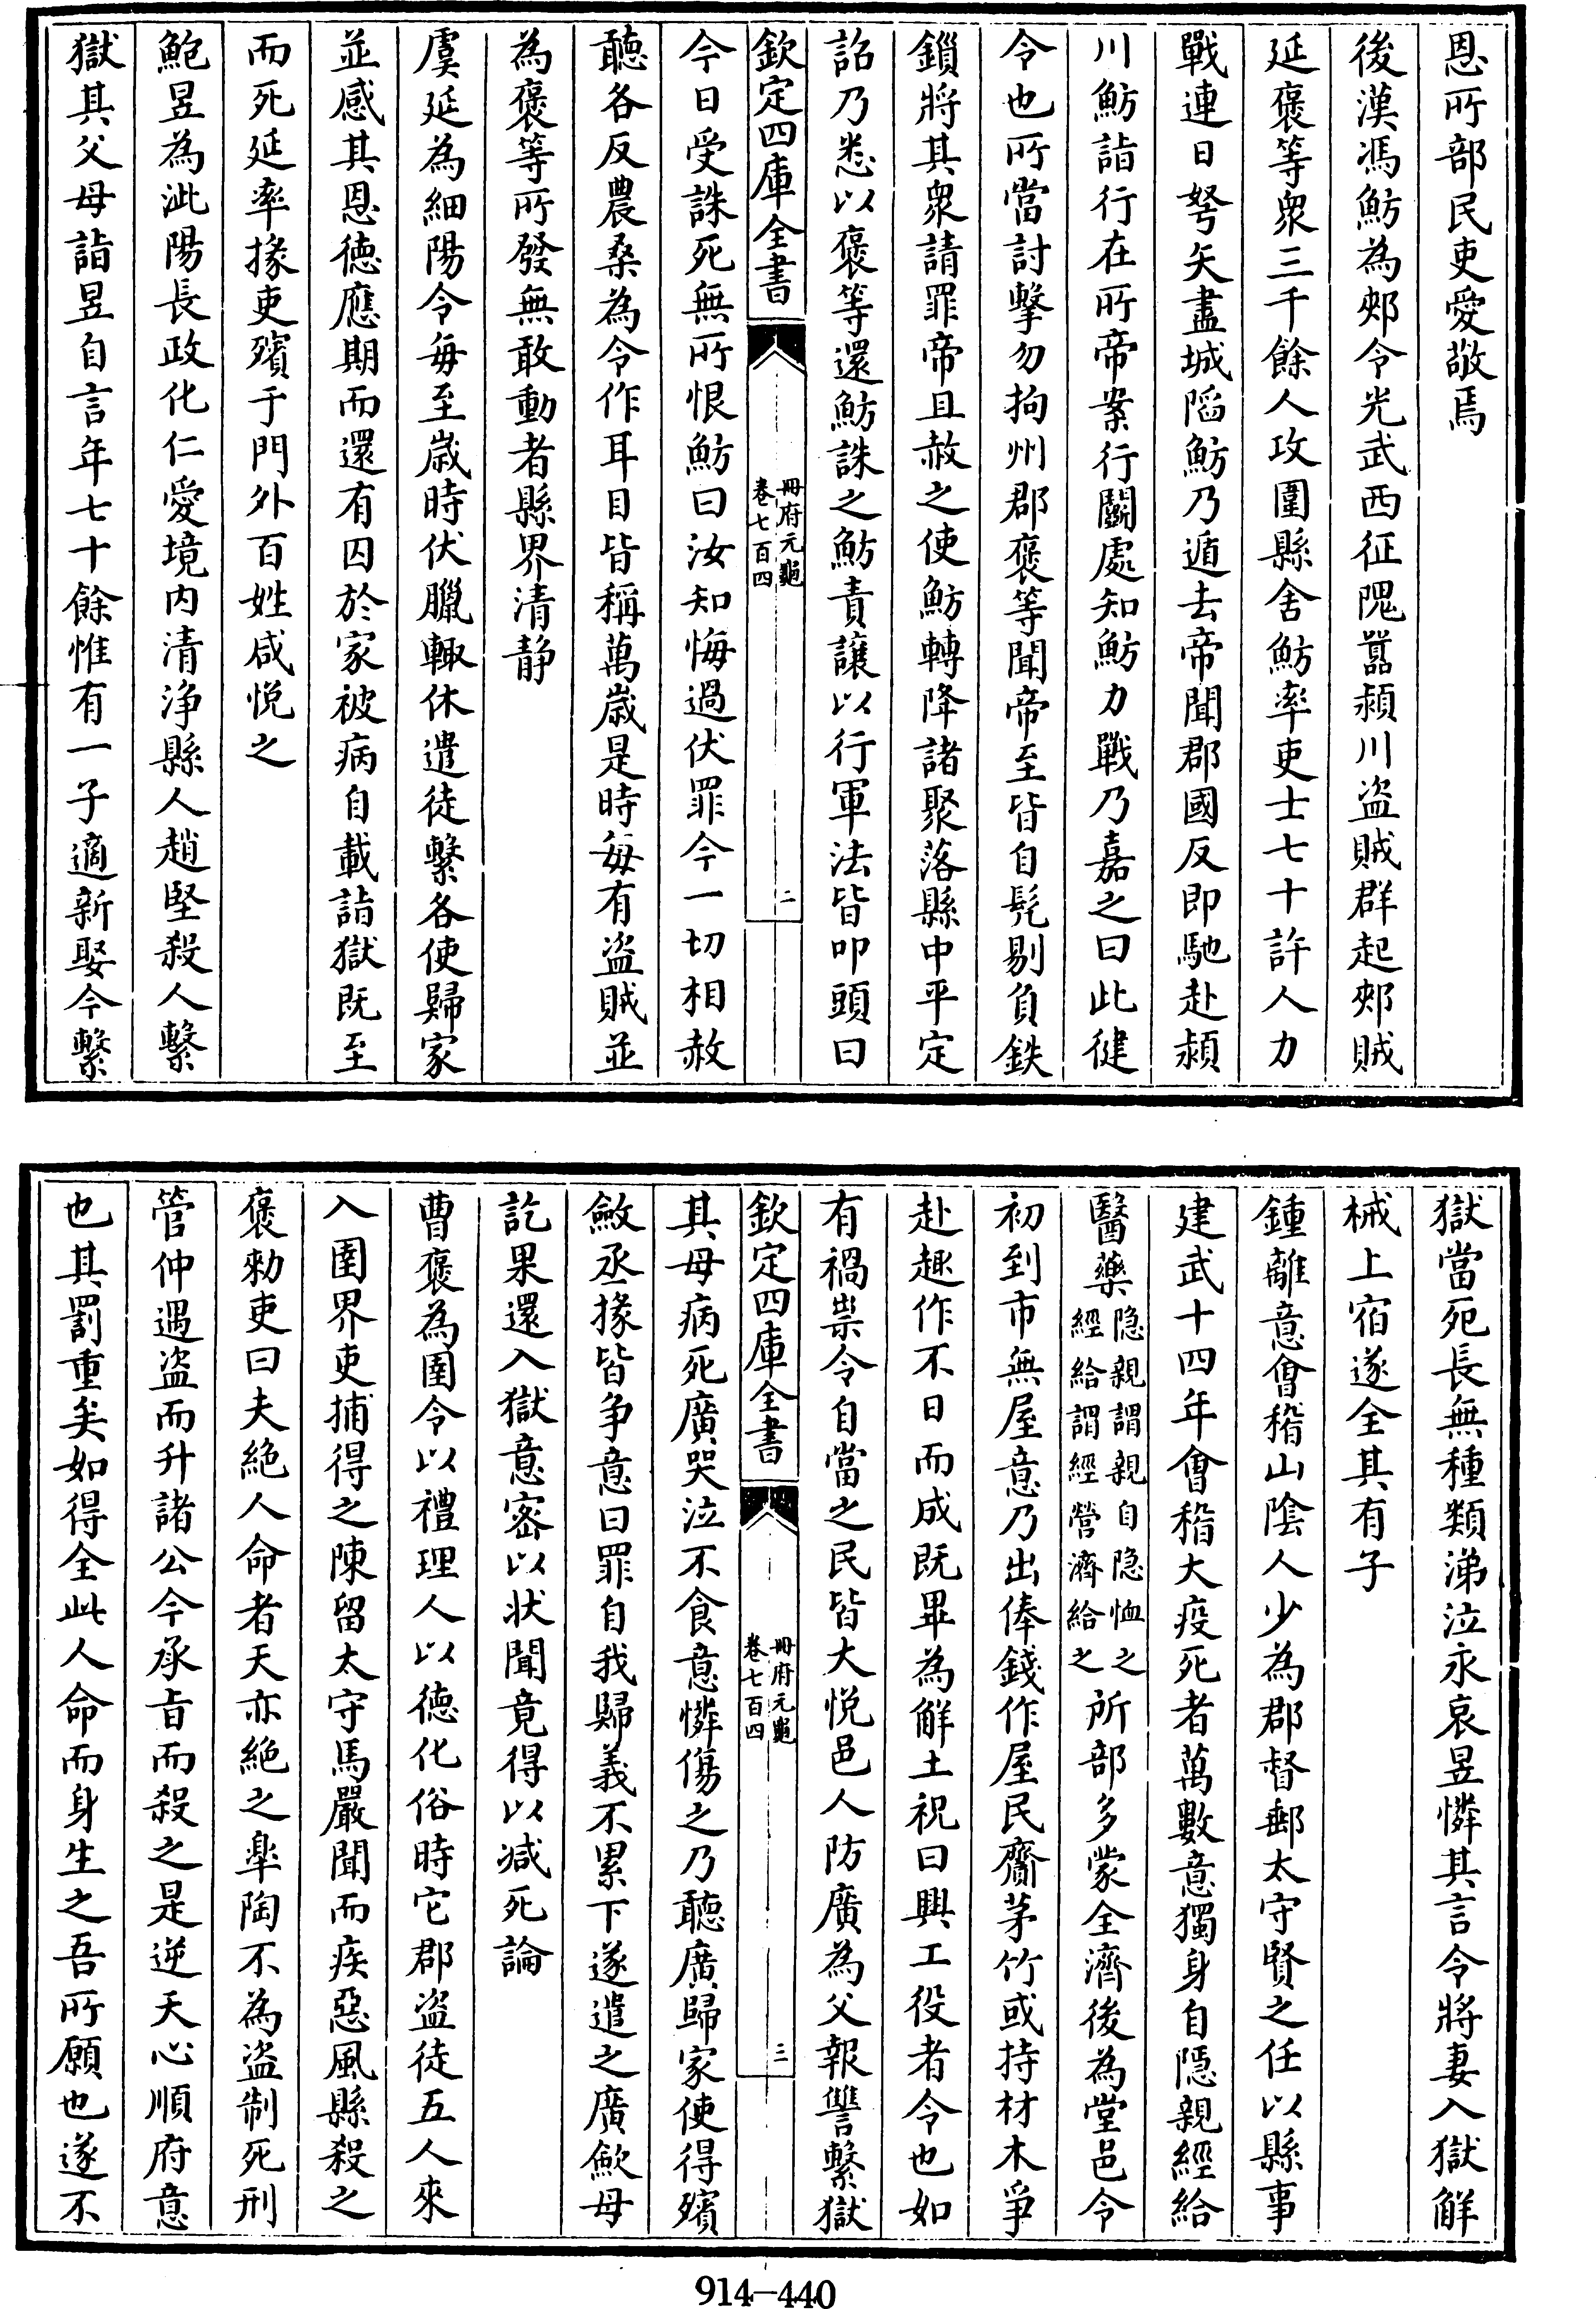 恩所部民吏愛敬焉
後漢馮魴為郟令光武西征隗囂潁川盗賊群起郟賊
延褒等衆三千餘人攻圍縣舍魴率吏士七十許人力
戰連日弩矢盡城陷魴乃遁去帝聞郡國反即馳赴潁
川魴詣行在所帝案行鬭處知魴力戰乃嘉之曰此健
令也所當討擊勿拘州郡褒等聞帝至皆自髡剔負鈇
鎻將其衆請罪帝且赦之使魴轉降諸聚落縣中平定
詔乃悉以褒等還魴誅之魴責讓以行軍法皆叩頭曰
欽定四庫全書
冊府元龜
卷七百四
二
今日受誅死無所恨魴曰汝知悔過伏罪今一切相赦
聽各反農桑為令作耳目皆稱萬歲是時每有盗賊並
為褒等所發無敢動者縣界清静
虞延為細陽令毎至歲時伏臘輙休遣徒繫各使歸家
並感其恩徳應期而還有囚於家被病自載詣獄既至
而死延率掾吏殯于門外百姓咸悦之
鮑昱為沘陽長政化仁愛境内清浄縣人趙堅殺人繫
獄其父母詣昱自言年七十餘惟有一子適新娶今繫
獄當死長無種類涕泣永哀昱憐其言令將妻入獄解
械上宿遂全其有子
鍾離意會稽山陰人少為郡督郵太守賢之任以縣事
建武十四年會稽大疫死者萬數意獨身自隱親經給
醫藥隐親謂親自隐恤之經給謂經營濟給之所部多蒙全濟後為堂邑令
初到市無屋意乃出俸錢作屋民齎茅竹或持材木爭
赴趣作不日而成既畢為解土祝曰興工役者令也如
有禍祟令自當之民皆大悦邑人防廣為父報讐繫獄
欽定四庫全書
冊府元龜
卷七百四
三
其母病死廣哭泣不食意憐傷之乃聽廣歸家使得殯
斂丞掾皆争意曰罪自我歸義不累下遂遣之廣歛母
訖果還入獄意密以状聞竟得以减死論
曹褒為圉令以禮理人以徳化俗時它郡盗徒五人來
入圉界吏捕得之陳留太守馬嚴聞而疾惡風縣殺之
褒勑吏曰夫絶人命者天亦絶之臯陶不為盗制死刑
管仲遇盗而升諸公今承旨而殺之是逆天心順府意
也其罰重矣如得全此人命而身坐之吾所願也遂不
914-440